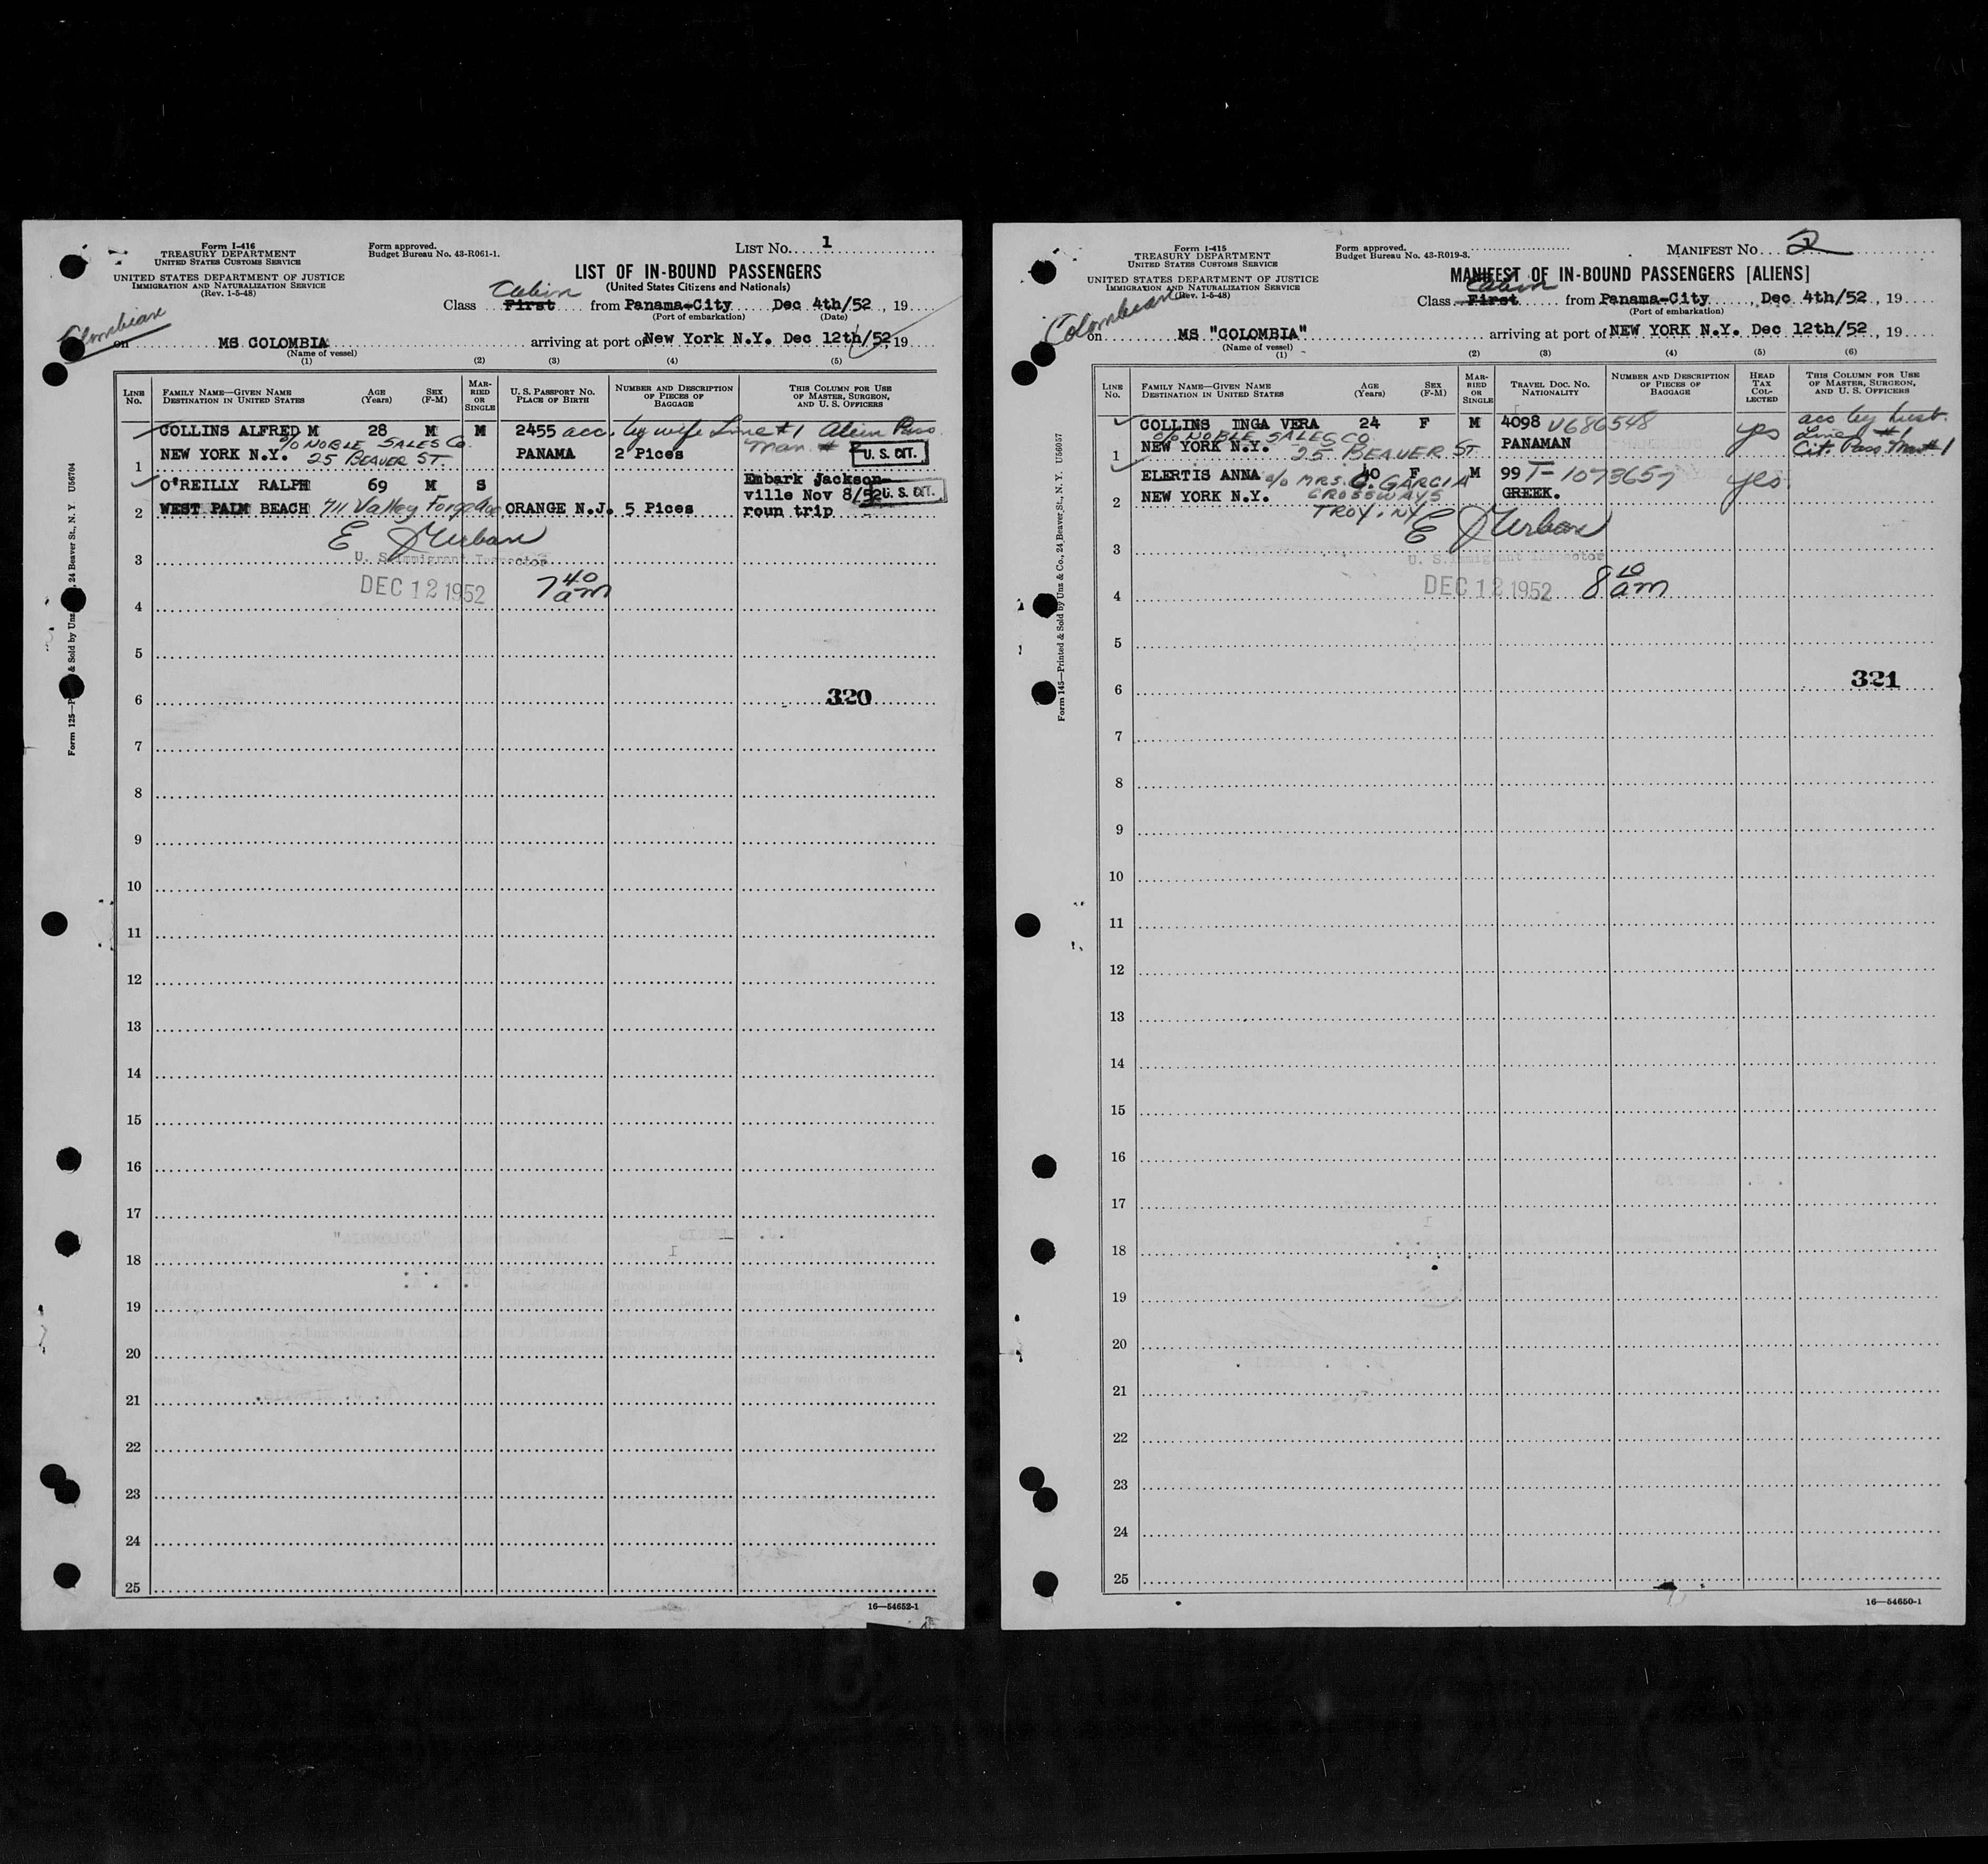 Form I-416
TREASURY DEPARTMENT
UNITED STATES CUSTOMS SERVICE
UNITED STATES DEPARTMENT OF JUSTICE
IMMIGRATION AND NATURALIZATION SERVICE
(Rev. 1-5-48)
Form approved.
Budget Bureau No. 43-R061-1.
LIST No. 1
LIST OF IN-BOUND PASSENGERS
(United States Citizens and Nationals)
Cabin
Class First from Panama-City Dec 4th/52, 19
(Port of embarkation) (Date)
Colombian
on MS COLOMBIA arriving at port of New York N.Y. Dec 12th/52, 19
(Name of vessel)
(1) (2) (3) (4) (5)
LINE No. FAMILY NAME—GIVEN NAME DESTINATION IN UNITED STATES AGE (Years) SEX (F-M) MARRIED OR SINGLE U. S. PASSPORT No. PLACE OF BIRTH NUMBER AND DESCRIPTION OF PIECES OF BAGGAGE THIS COLUMN FOR USE OF MASTER, SURGEON, AND U. S. OFFICERS
COLLINS ALFRED M 28 M M 2455 acc. by wife Line #1 Alien Pass
c/o NOBLE SALES Co. Man. #
1 NEW YORK N.Y. 25 BEAVER ST. PANAMA 2 Pices U. S. CIT.
O'REILLY RALPH 69 M S Embark Jackson-
ville Nov 8/52 U. S. CIT.
2 WEST PALM BEACH 711 Valley Forge ORANGE N.J. 5 Pices roun trip
E J Urban
3 U. S. Immigrant Inspector
4 DEC 12 1952 7 40 am
5
6 320
7
8
9
10
11
12
13
14
15
16
17
18
19
20
21
22
23
24
25
16—54652-1
24 Beaver St., N. Y. U56704
Form I-415
TREASURY DEPARTMENT
UNITED STATES CUSTOMS SERVICE
UNITED STATES DEPARTMENT OF JUSTICE
IMMIGRATION AND NATURALIZATION SERVICE
(Rev. 1-5-48)
Form approved.
Budget Bureau No. 43-R019-3.
MANIFEST No. 2
MANIFEST OF IN-BOUND PASSENGERS [ALIENS]
Cabin
Class First from Panama-City, Dec 4th/52, 19
(Port of embarkation)
Colombian
on MS "COLOMBIA" arriving at port of NEW YORK N.Y. Dec 12th/52, 19
(Name of vessel)
(1) (2) (3) (4) (5) (6)
LINE No. FAMILY NAME—GIVEN NAME DESTINATION IN UNITED STATES AGE (Years) SEX (F-M) MARRIED OR SINGLE TRAVEL DOC. No. NATIONALITY NUMBER AND DESCRIPTION OF PIECES OF BAGGAGE HEAD TAX COLLECTED THIS COLUMN FOR USE OF MASTER, SURGEON, AND U. S. OFFICERS
COLLINS INGA VERA 24 F M 4098 V686548 yes acc by husb.
c/o NOBLE SALES CO Line #1
1 NEW YORK N.Y. 25 BEAVER ST PANAMAN Cit. Pass Man #1
ELERTIS ANNA c/o MRS. GARCIA 40 F M 99 T-1073657 yes.
2 NEW YORK N.Y. CROSSWAYS GREEK.
TROY, NY
E J Urban
3 U. S. Immigrant Inspector
4 DEC 12 1952 8 10 am
5
6 321
7
8
9
10
11
12
13
14
15
16
17
18
19
20
21
22
23
24
25
16—54650-1
Form 145—Printed & Sold by Unz & Co., 24 Beaver St., N. Y. U56057